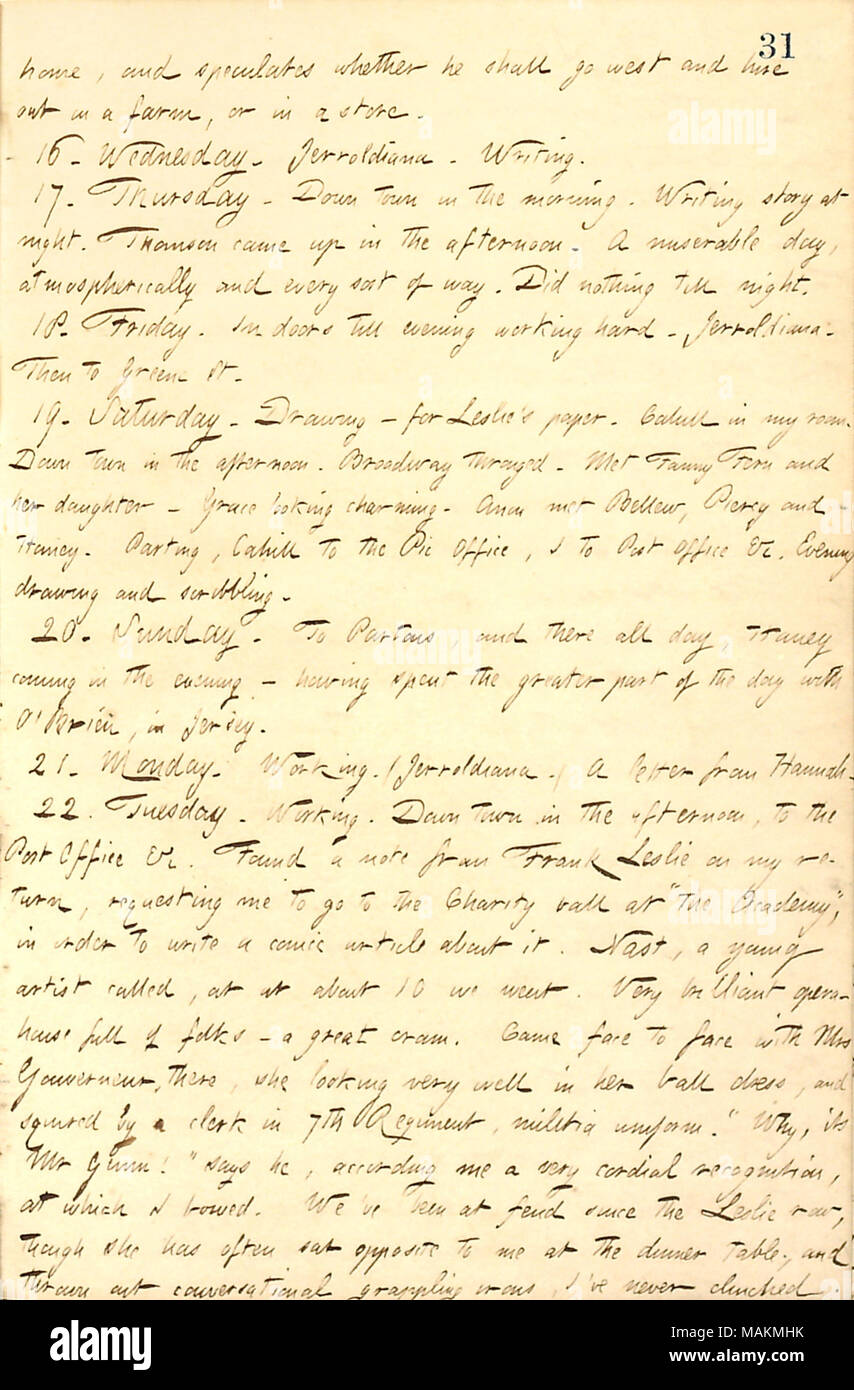 31
home, and speculates whether he shall go west and hire
out in a farm, or in a store.
16. Wednesday. Jerroldiana. Writing.
17. Thursday. Down town in the morning. Writing story at
night. Thomson came up in the afternoon. A miserable day,
atmospherically and every sort of way. Did nothing till night.
18. Friday. In doors till evening working hard. Jerroldiana.
Then to Greene St.
19. Saturday. Drawing — for Leslie's paper. Cahill in my room.
Down town in the afternoon. Broadway thronged. Met Fanny Fern and
her daughter — Grace looking charming. Anon met Bellew, Piercy and
Haney. Parting, Cahill to the Pic Office, I to Post Office &c. Evening
drawing and scribbling.
20. Sunday. To Partons, and there all day, Haney
coming in the evening — having spent the greater part of the day with
O'Brien, in Jersey.
21. Monday. Working. (Jerroldiana.) A letter from Hannah.
22. Tuesday. Working. Down town in the afternoon, to the
Post Office &c. Found a note from Frank Leslie on my re-
turn, requesting me to go to the Charity ball at "the Academy",
in order to write a comic article about it. Nast, a young
artist called, at at about 10 we went. Very brilliant opera-
house full of folks — a great cram. Came face to face with Mrs
Gouverneur, there, she looking very well in her ball dress, and
squired by a clerk in 7th Regiment, militia uniform. "Why, its
Mr Gunn!" says he, according me a very cordial recognition,
at which I bowed. We've been at feud since the Leslie row,
though she has often sat opposite to me at the dinner table, and
thrown out conversational grappling irons, I've never clinched.
alamy
Image ID: MAKMHK
www.alamy.com